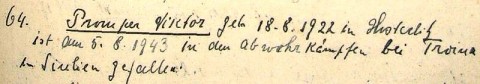 64. Promper Viktor geb 18.8.1922 in Husterlitz
ist am 5.8.1943 in den Abwehrkämpfen bei Troina
in Sizilien gefallen.